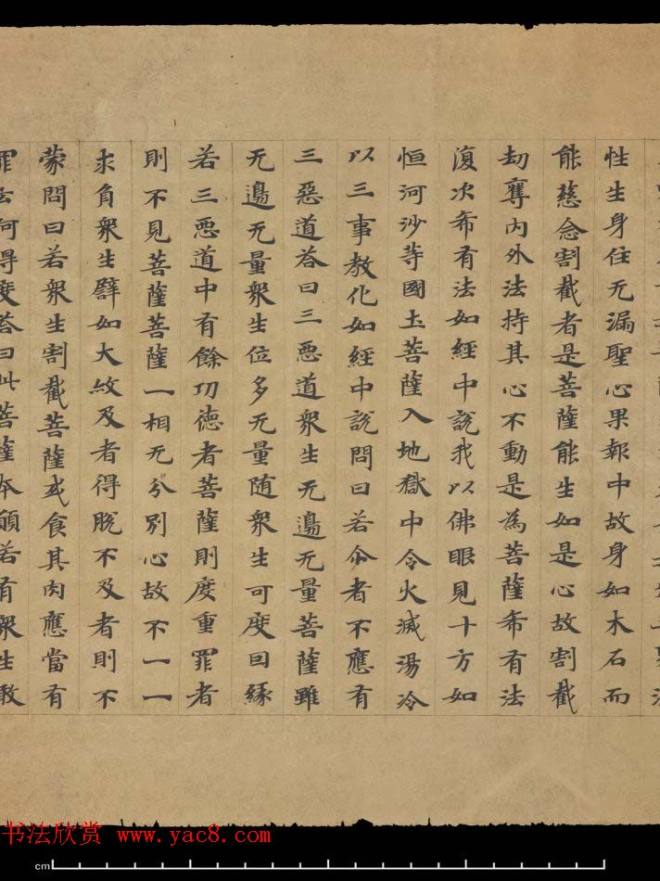 性生身住无漏聖心果報中故身如木石而
能慈念割截者是菩薩能生如是心故割截
劫奪內外法持其心不動是為菩薩希有法
復次希有法如經中說我以佛眼見十方如
恒河沙等國土菩薩入地獄中令火滅湯冷
以三事教化如經中說問曰若尒者不應有
三惡道荅曰三惡道衆生无邊无量菩薩雖
无邊无量衆生位多无量随衆生可度囙緣
若三惡道中有餘功德者菩薩則度重罪者
則不見菩薩菩薩一相无分別心故不一一
求角衆生譬如大赦及者得脫不及者則不
蒙問曰若衆生割截菩薩或食其肉應當有
罪云何得度荅曰此菩薩本願若有衆生敢
书法欣赏 www.yac8.com
cm